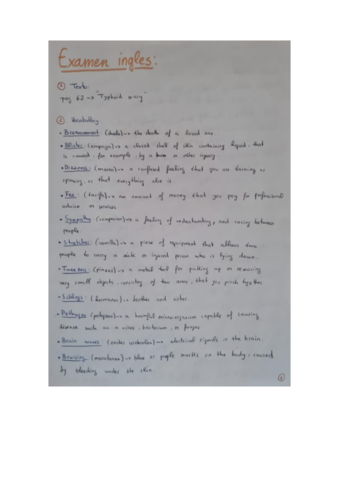 Examen ingles:
① Texto:
pag 62 → "Typhoid Mary"
② Vocabulary
• Bereavement: (duelo) → the death of a loved one
• Blister: (ampolla) → a closed shell of skin containing liquid that
is caused, for example, by a burn or other injury
• Dizziness: (mareo) → a confused feeling that you are turning or
spinning, or that everything else is
• Fee: (tarifa) → an amount of money that you pay for professional
advice or services
• Sympathy: (compasion) → a feeling of understanding and caring between
people.
• Stretcher: (camilla) → a piece of equipment that allows
people to carry a sick or injured person who is lying down.
• Tweezers: (pinzas) → a metal tool for picking up or removing
very small objects, consisting of two arms, that you pinch together
• Siblings: (hermanos) → brother and sister
• Pathogen: (patogeno) → a harmful microorganism capable of causing
disease such as a virus, bacterium, or fungus
• Brain waves: (ondas cerebrales) → electrical signals in the brain.
• Bruising: (moretones) → blue or purple marks on the body, caused
by bleeding under the skin.